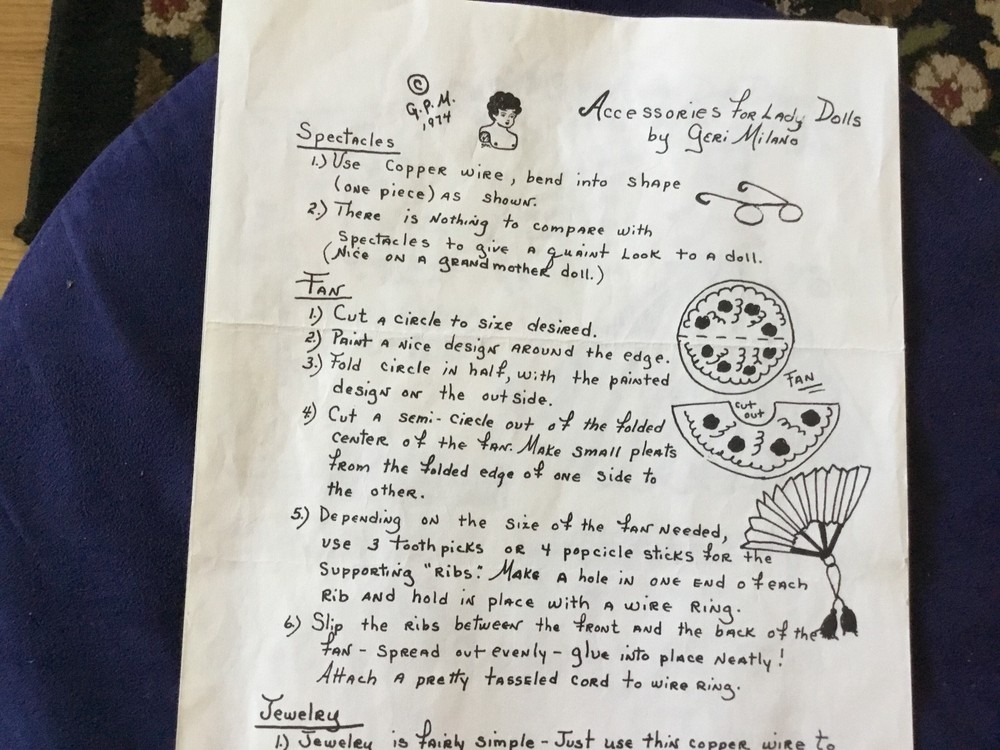 © G.P.M. 1974
Accessories For Lady Dolls
by Geri Milano
Spectacles
1.) Use copper wire, bend into shape
(one piece) as shown.
2.) There is nothing to compare with
spectacles to give a quaint look to a doll.
(Nice on a grandmother doll.)
Fan
1.) Cut a circle to size desired.
2) Paint a nice design around the edge.
3.) Fold circle in half, with the painted
design on the outside.
Fan
4) Cut a semi-circle out of the folded
center of the fan. Make small pleats
from the folded edge of one side to
the other.
cut
out
5.) Depending on the size of the fan needed,
use 3 toothpicks or 4 popcicle sticks for the
supporting "ribs." Make a hole in one end of each
rib and hold in place with a wire ring.
6) Slip the ribs between the front and the back of the
fan - spread out evenly - glue into place neatly!
Attach a pretty tasseled cord to wire ring.
Jewelry
1.) Jewelry is fairly simple - Just use thin copper wire to